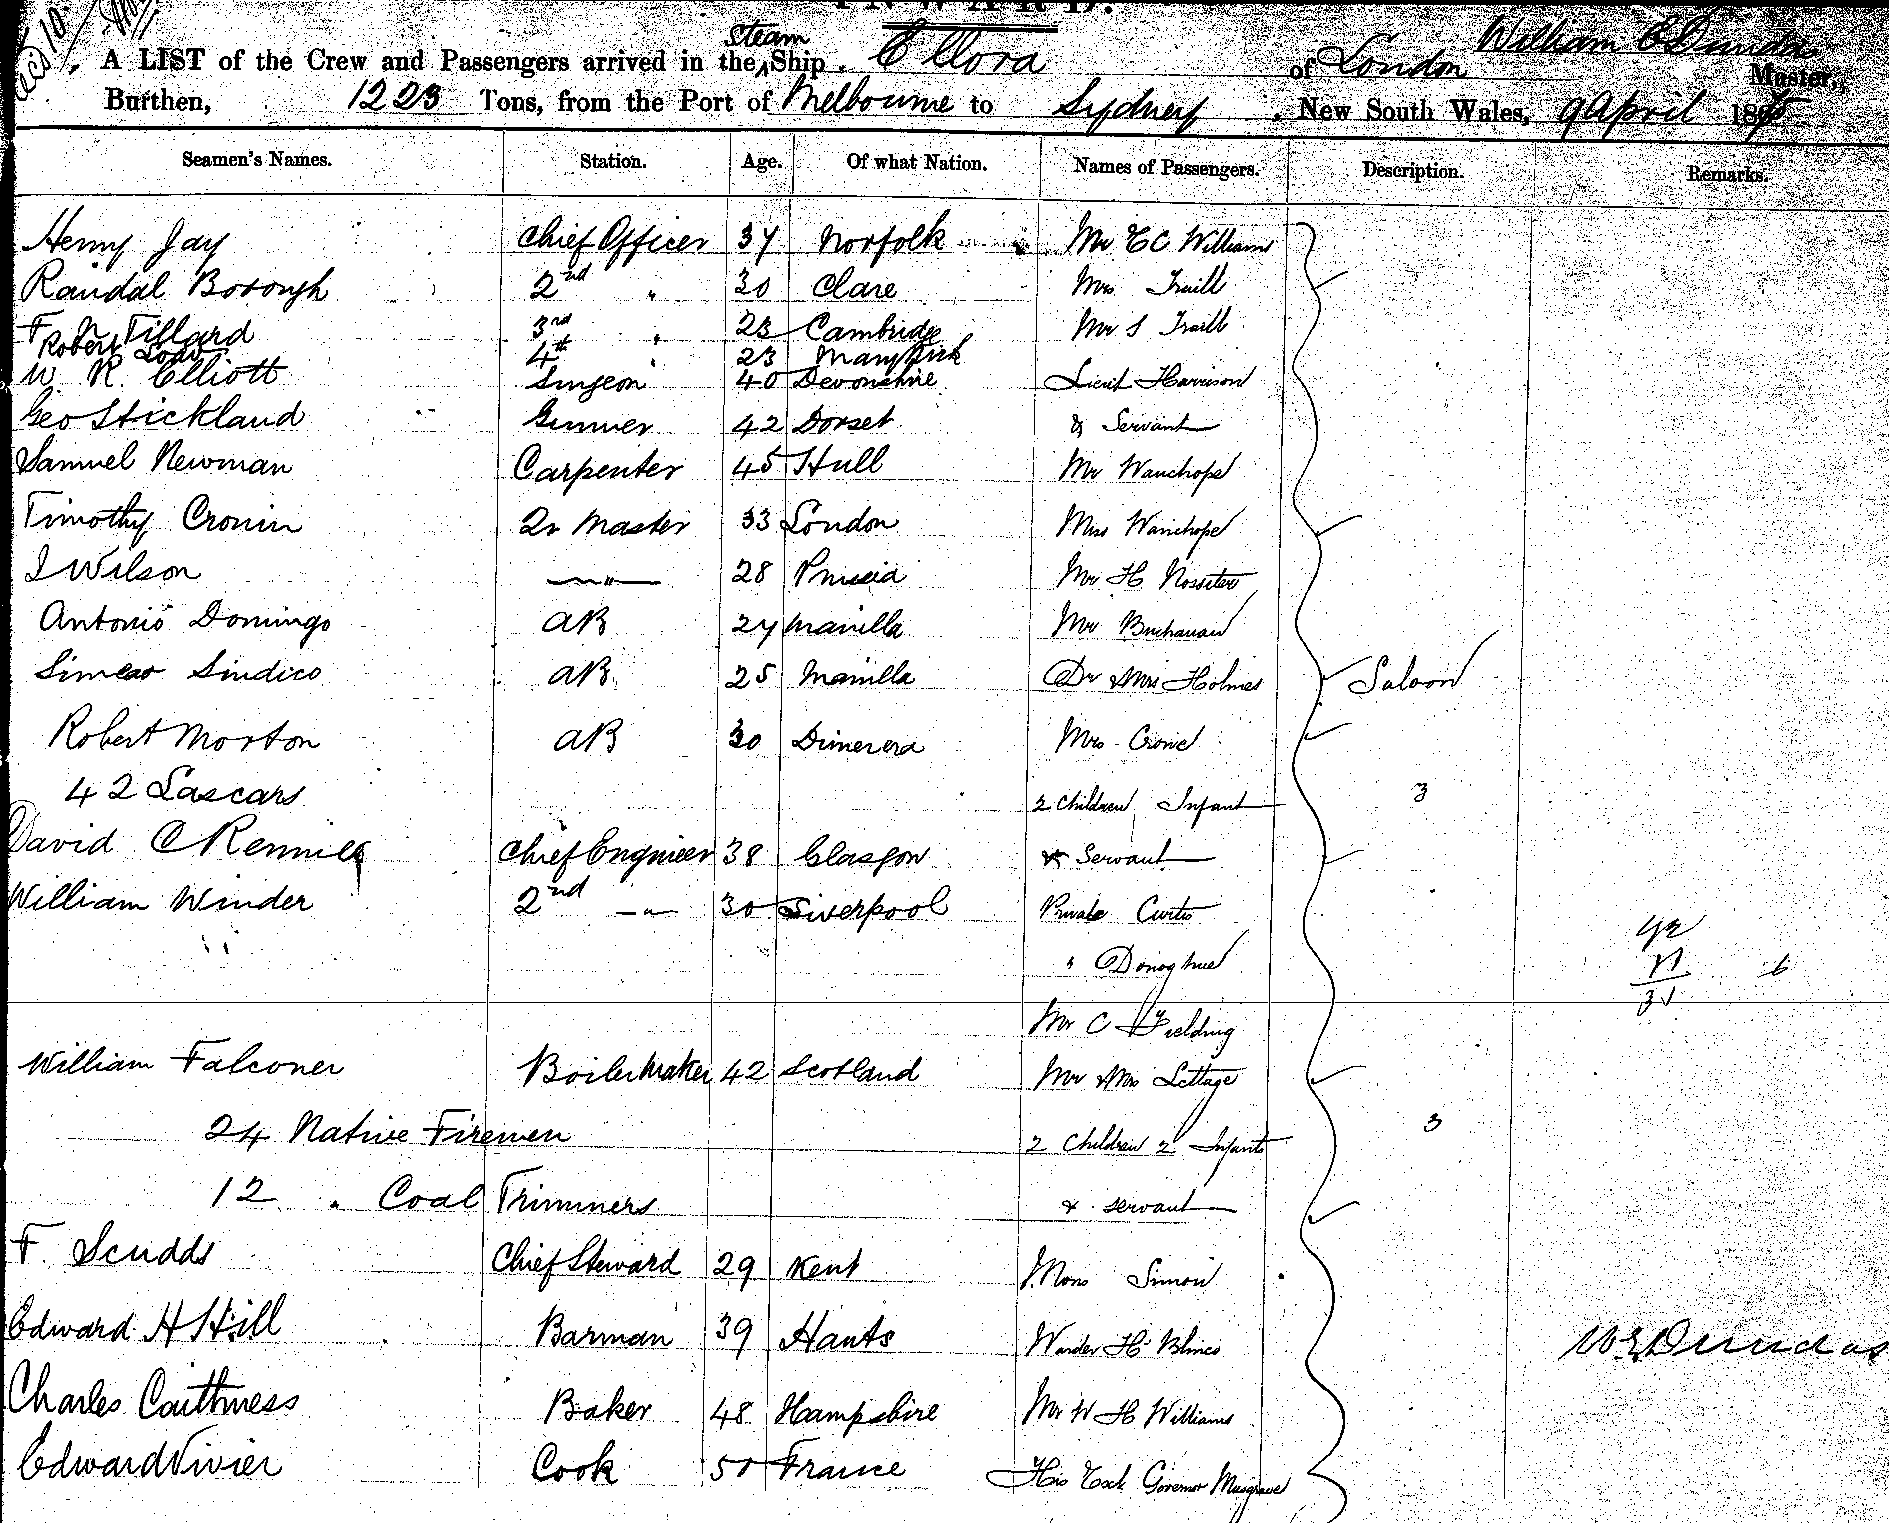 INWARD.
Steam William E Dundas
A LIST of the Crew and Passengers arrived in the Ship. Ellora of London Master,
Burthen, 1223 Tons, from the Port of Melbourne to Sydney, New South Wales, 9 April 187
Seamen's Names. Station. Age. Of what Nation. Names of Passengers. Description. Remarks.
Henry Jay Chief Officer 37 Norfolk Mr E C Williams
Randal Borough 2nd " 30 Clare Mrs Traill
F N Tillard 3rd " 23 Cambridge Mr S Traill
Robert 4th " 23
W. R. Elliott Surgeon 40 Devonshire Lieut Harrison
Geo Stickland Gunner 42 Dorset & Servant
Samuel Newman Carpenter 45 Hull Mr Wauchope
Timothy Cronin Qr Master 33 London Miss Wauchope
J Wilson " 28 Prussia Mr H Rossiter
Antonio Domingo AB 24 Manilla Mr Buchanan
Simeao Sindico AB 25 Manilla Dr & Mrs Holmes Saloon
Robert Morton AB 30 Dimerera Mrs Crowe
42 Lascars 2 Children Infant 3
David C Rennie Chief Engineer 38 Glasgow & Servant
William Winder 2nd " 30 Liverpool Private Curtis
" Donoghue
Mr C Fielding
William Falconer Boilermaker 42 Scotland Mr & Mrs Lettage
24 Native Firemen 2 Children 2 Infants 3
12 " Coal Trimmers & servant
F. Scudds Chief Steward 29 Kent Mons Simon
Edward H Hill Barman 39 Hants Warder H Blines W E Dundas
Charles Caithness Baker 48 Hampshire Mr W H Williams
Edward Vivier Cook 50 France His Exck Governor Musgrave